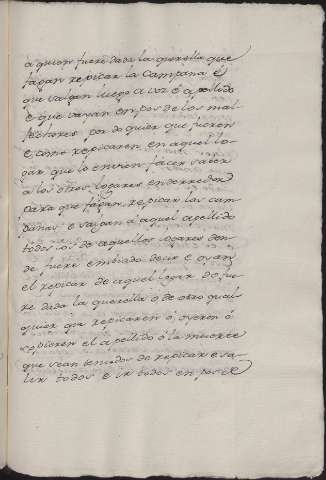 a quien fuere dada la querella que
fagan repicar la campana é
que salgan luego a voz é apellido
é que vayan en pos de los mal
fechores por do quier que fueren
é como repicaren en aquel lo-
gar que lo envien facer saver
a los otros logares enderredor
para que fagan repicar las cam
panas e salgan á aquel apellido
todos los de aquellos logares don
de fuere embiado decir e oyan
el repicar de aquel logar do fue
re dada la querella ó de otro qual
quier que repicaren ó oyeren ó
sopieren el apellido ó la muerte
que sean tenudos de repicar e sa-
lir todos e ir todos en pos de